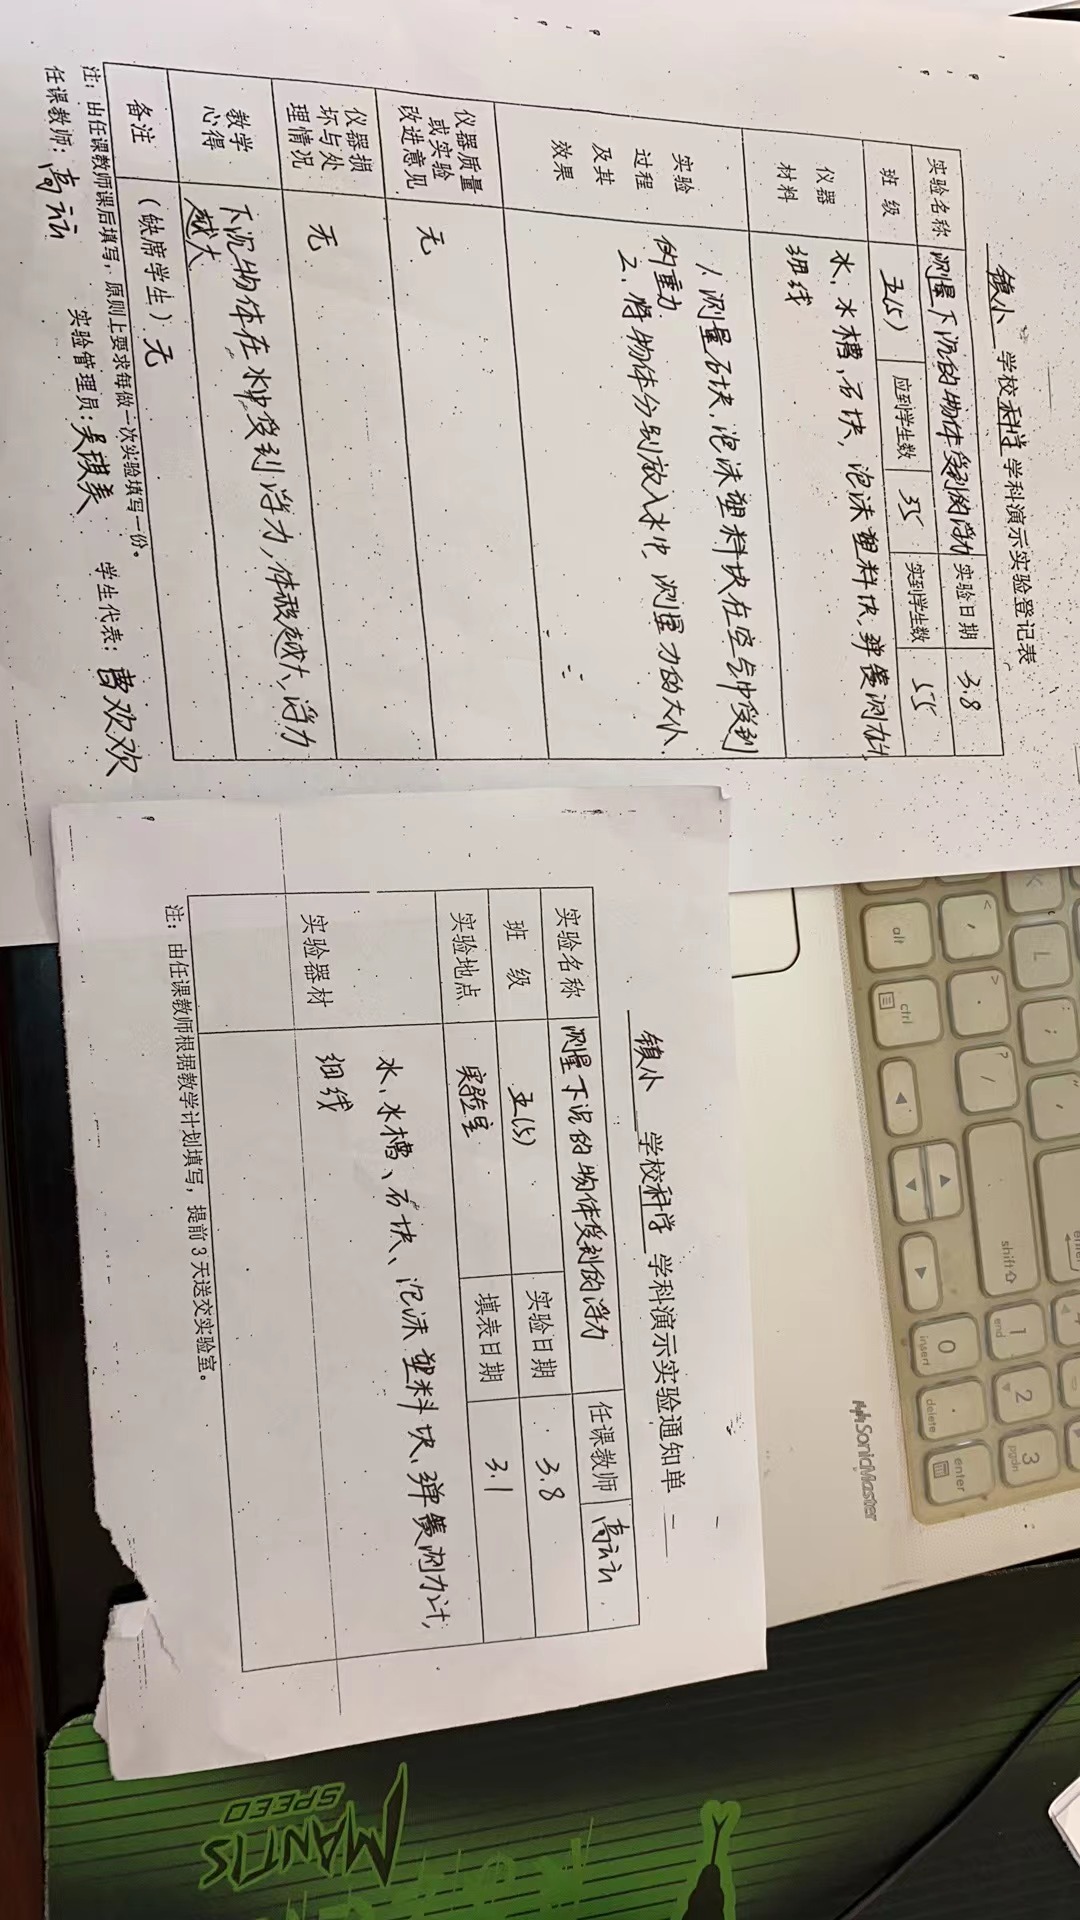 镇小 学校科学学科演示实验登记表
实验名称 测量下沉的物体受到的浮力 实验日期 3.8
班 级 五(5) 应到学生数 55 实到学生数 55
仪器材料
水、水槽、石块、泡沫塑料块、弹簧测力计
细线
实验过程及其效果
1、测量石块、泡沫塑料块在空气中受到
的重力
2、将物体分别放入水中,测量力的大小.
仪器质量或实验改进意见 无
仪器损坏与处理情况 无
教学心得
下沉物体在水中受到浮力,体积越大,浮力
越大
备注 (缺席学生)无
注:由任课教师课后填写,原则上要求每做一次实验填写一份。
任课教师: 实验管理员:吴琪美 学生代表:曹欢欢
镇小 学校科学 学科演示实验通知单
实验名称 测量下沉的物体受到的浮力 任课教师
班 级 五(5) 实验日期 3.8
实验地点 实验室 填表日期 3.1
实验器材
水、水槽、石块、泡沫塑料块、弹簧测力计,
细线
注:由任课教师根据教学计划填写,提前3天送交实验室。
alt
ctrl
shift
enter
0
insert
1
end
2
3
pgdn
delete
enter
SonicMaster
MANTIS
SPEED